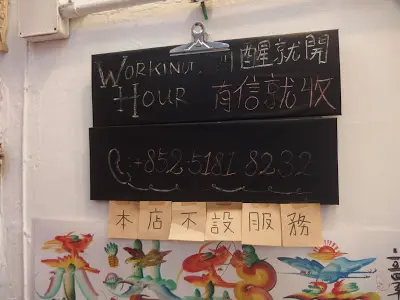 WORKING 醒就開
HOUR 有信就收
+852-5181 8232
本店不設服務